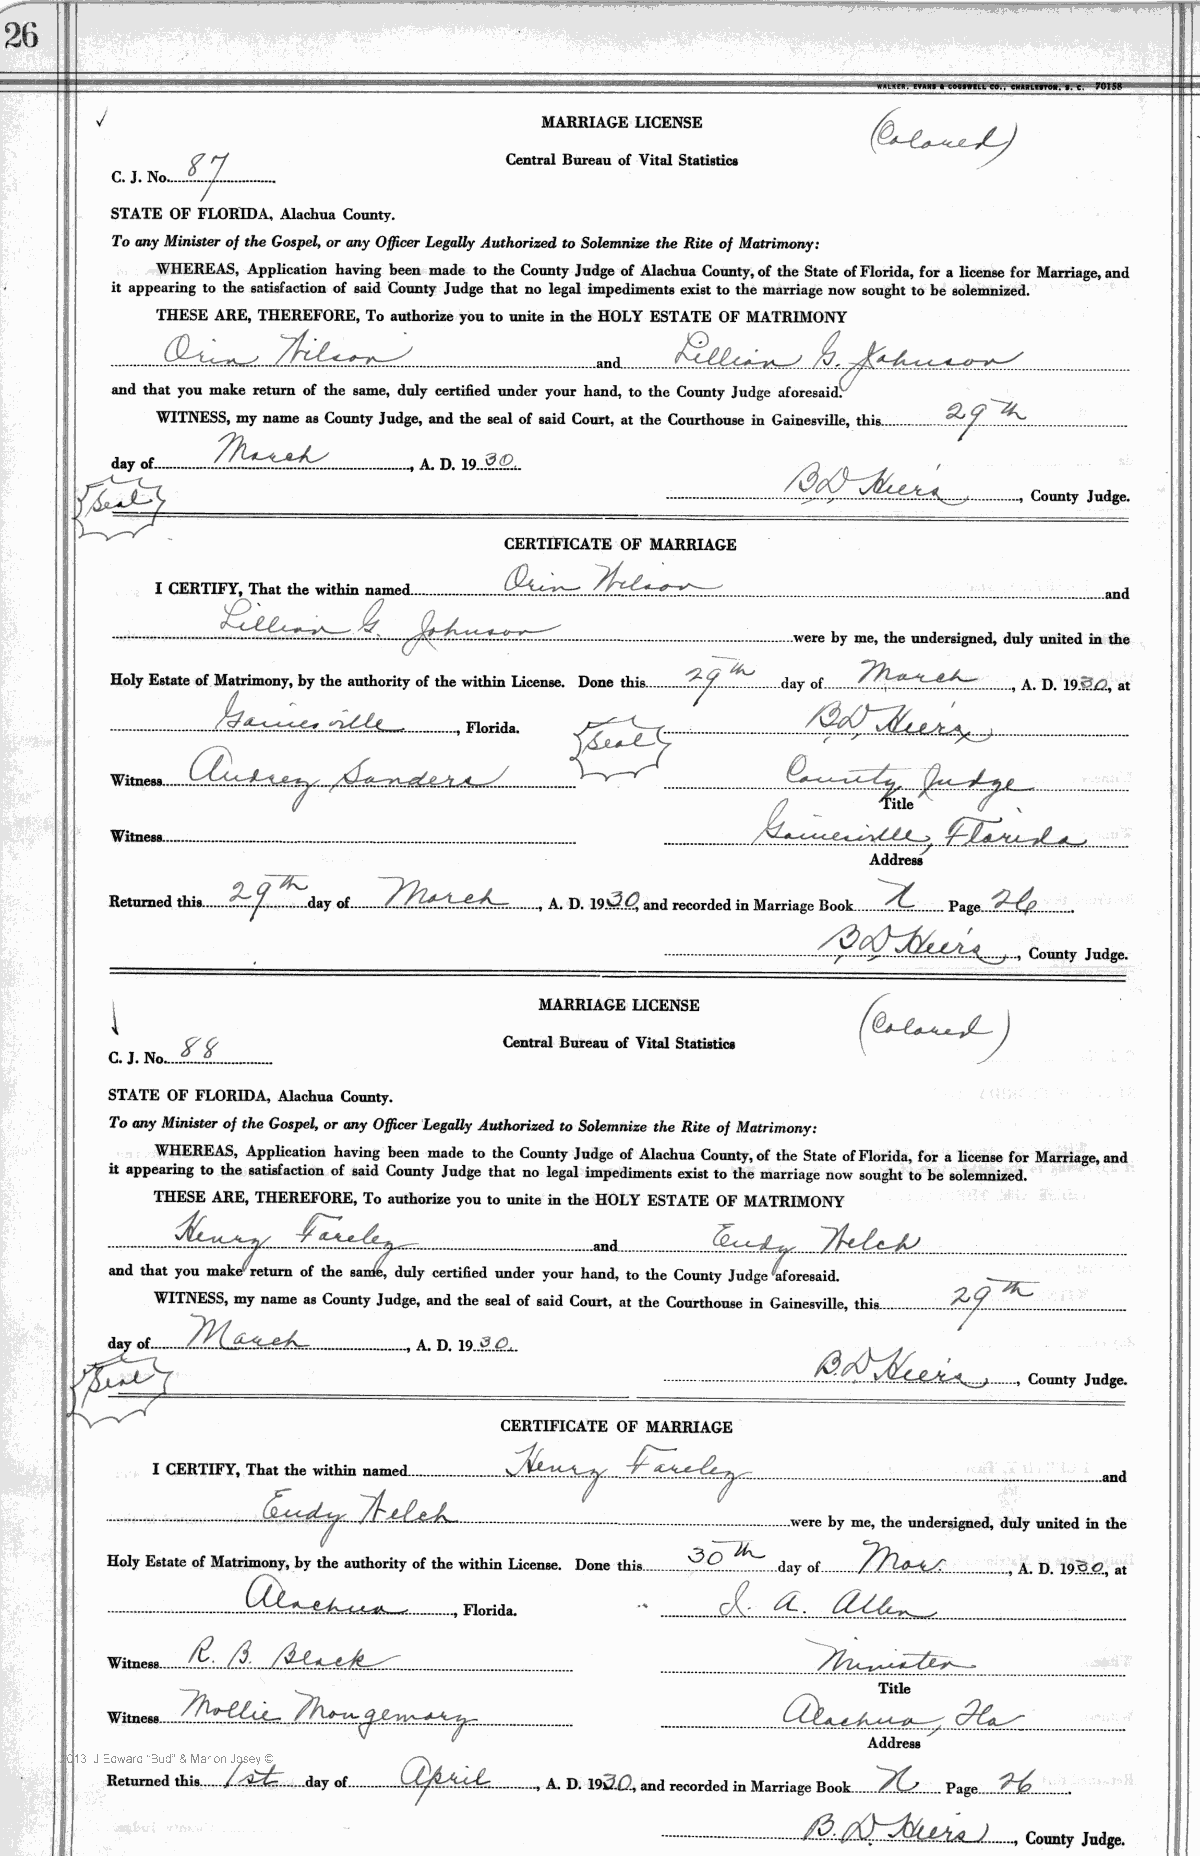 26
WALKER, EVANS & COGSWELL CO., CHARLESTON, S. C. 70158
MARRIAGE LICENSE
(Colored)
Central Bureau of Vital Statistics
C. J. No. 87
STATE OF FLORIDA, Alachua County.
To any Minister of the Gospel, or any Officer Legally Authorized to Solemnize the Rite of Matrimony:
WHEREAS, Application having been made to the County Judge of Alachua County, of the State of Florida, for a license for Marriage, and
it appearing to the satisfaction of said County Judge that no legal impediments exist to the marriage now sought to be solemnized.
THESE ARE, THEREFORE, To authorize you to unite in the HOLY ESTATE OF MATRIMONY
Orin Wilson and Lillian G. Johnson
and that you make return of the same, duly certified under your hand, to the County Judge aforesaid.
WITNESS, my name as County Judge, and the seal of said Court, at the Courthouse in Gainesville, this 29th
day of March, A. D. 1930.
B.D. Hiers, County Judge.
Seal
CERTIFICATE OF MARRIAGE
I CERTIFY, That the within named Orin Wilson and
Lillian G. Johnson were by me, the undersigned, duly united in the
Holy Estate of Matrimony, by the authority of the within License. Done this 29th day of March, A. D. 1930, at
Gainesville, Florida. Seal B.D. Hiers
Witness Audrey Sanders County Judge
Title
Witness Gainesville, Florida
Address
Returned this 29th day of March, A. D. 1930, and recorded in Marriage Book N Page 26.
B.D. Hiers, County Judge.
MARRIAGE LICENSE
(Colored)
Central Bureau of Vital Statistics
C. J. No. 88
STATE OF FLORIDA, Alachua County.
To any Minister of the Gospel, or any Officer Legally Authorized to Solemnize the Rite of Matrimony:
WHEREAS, Application having been made to the County Judge of Alachua County, of the State of Florida, for a license for Marriage, and
it appearing to the satisfaction of said County Judge that no legal impediments exist to the marriage now sought to be solemnized.
THESE ARE, THEREFORE, To authorize you to unite in the HOLY ESTATE OF MATRIMONY
Henry Fareley and Eudy Welch
and that you make return of the same, duly certified under your hand, to the County Judge aforesaid.
WITNESS, my name as County Judge, and the seal of said Court, at the Courthouse in Gainesville, this 29th
day of March, A. D. 1930.
B.D. Hiers, County Judge.
Seal
CERTIFICATE OF MARRIAGE
I CERTIFY, That the within named Henry Fareley and
Eudy Welch were by me, the undersigned, duly united in the
Holy Estate of Matrimony, by the authority of the within License. Done this 30th day of Mar., A. D. 1930, at
Alachua, Florida. A. Allen
Witness R. B. Black Minister
Title
Witness Mollie Mongemary Alachua, Fla
Address
013 J Edward "Bud" & Marion Josey ©
Returned this 1st day of April, A. D. 1930, and recorded in Marriage Book N Page 26.
B. D. Hiers, County Judge.